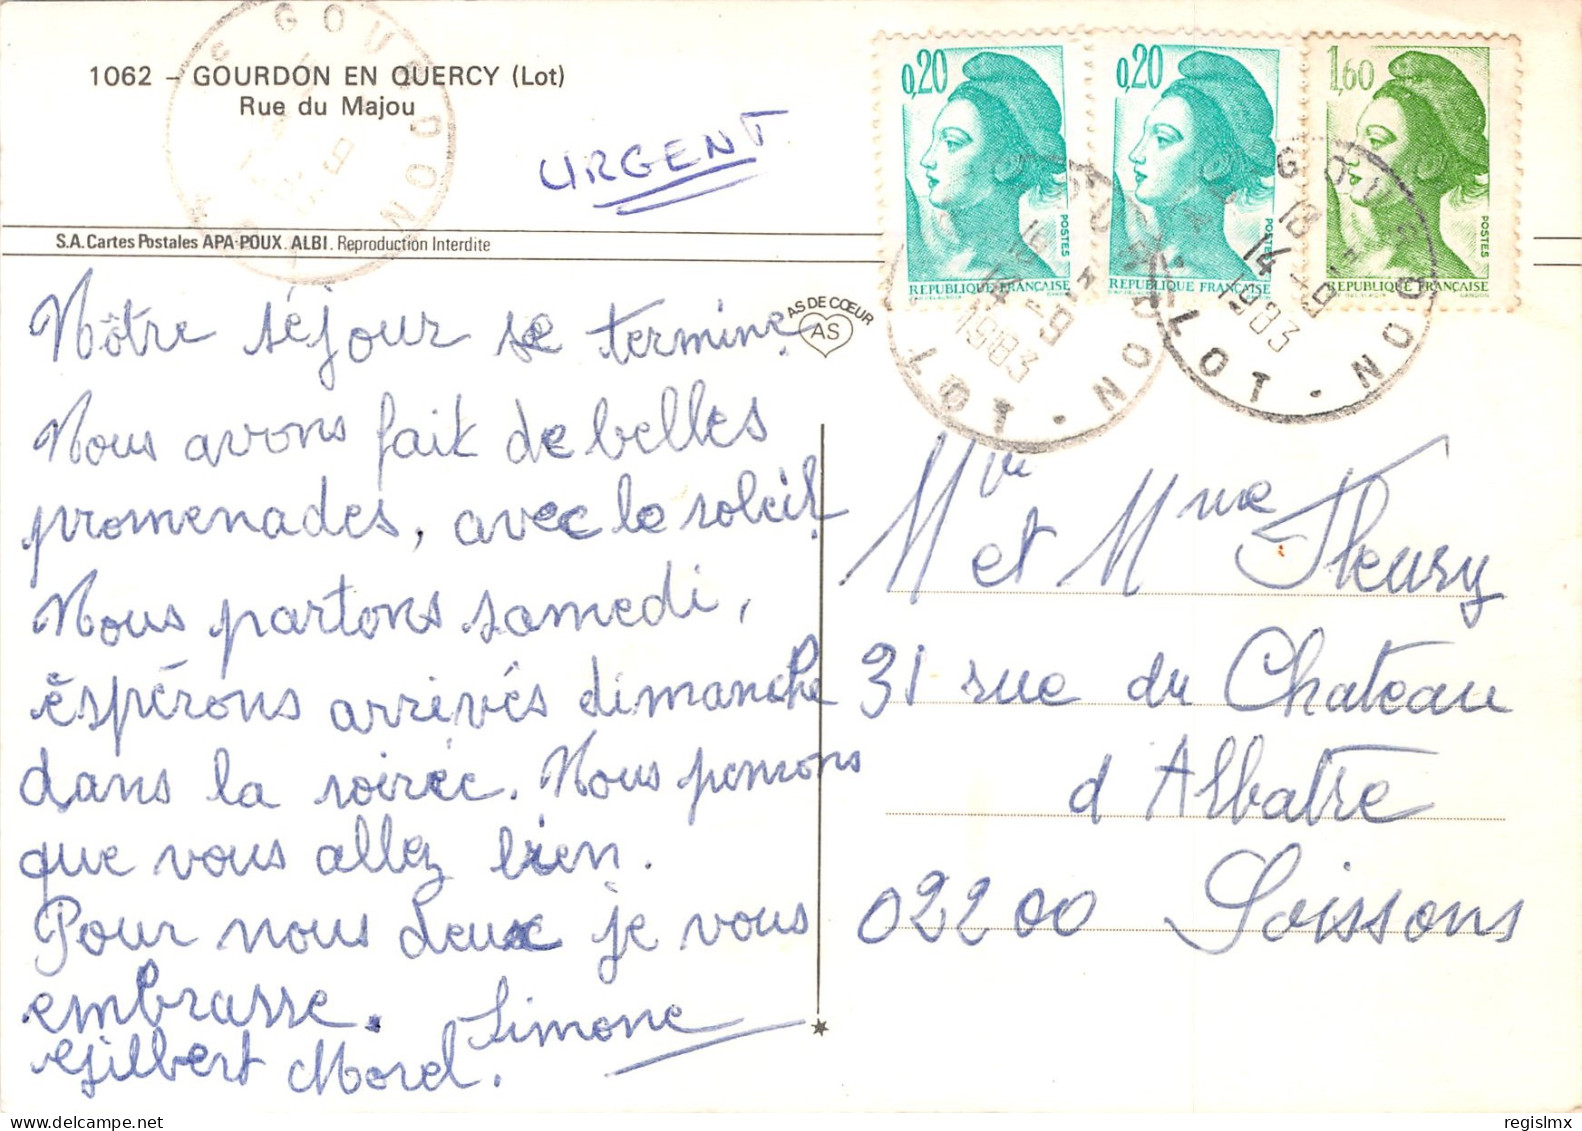 1062 - GOURDON EN QUERCY (Lot)
Rue du Majou
URGENT
S.A. Cartes Postales APA-POUX. ALBI. Reproduction Interdite
0,20
POSTES
REPUBLIQUE FRANÇAISE
0,20
POSTES
REPUBLIQUE FRANÇAISE
1,60
POSTES
REPUBLIQUE FRANÇAISE
GOURDON
GOURDON LOT
18 H
14 -9
1983
GOURDON LOT
18 H
14 -9
1983
AS DE CŒUR
AS
Nôtre séjour se termine.
Nous avons fait de belles
promenades, avec le soleil.
Nous partons samedi,
éspérons arrivés dimanche
dans la soirée. Nous pensons
que vous allez bien.
Pour nous deux je vous
embrasse. Simone
Gilbert Morel.
Mr et Mme Fleury
31 rue du Chateau
d Albatre
02200 Soissons
regislmx